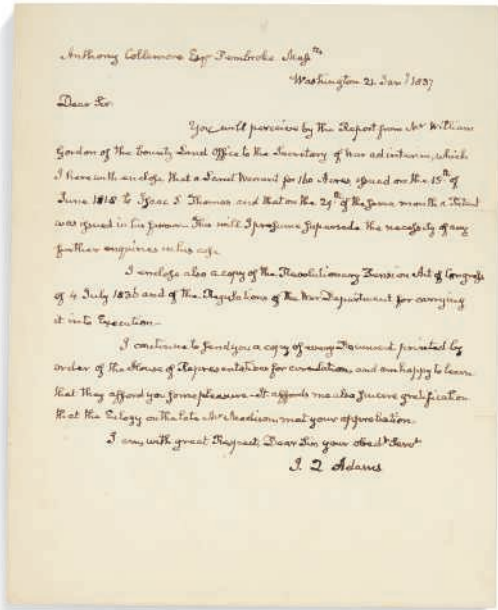 Anthony Collamore Esqr Pembroke Massts
Washington 21 Jany 1837
Dear Sir.
You will perceive by the Report from Mr William
Gordon of the Bounty Land Office to the Secretary of War ad interim, which
I herewith enclose that a Land Warrant for 160 Acres issued on the 15th of
June 1818 to Isaac S. Thomas and that on the 29th of the same month a Patent
was issued in his favour. This will I presume supersede the necessity of any
further enquiries in his case.
I enclose also a copy of the Revolutionary Pension Act of Congress
of 4 July 1836 and of the Regulations of the War Department for carrying
it into Execution—
I continue to send you a copy of every Document printed by
order of the House of Representatives for circulation, and am happy to learn
that they afford you some pleasure—It affords me also sincere gratification
that the Eulogy on the late Mr Madison, met your approbation
I am, with great Respect, Dear Sir your obedt Servt
J. Q. Adams